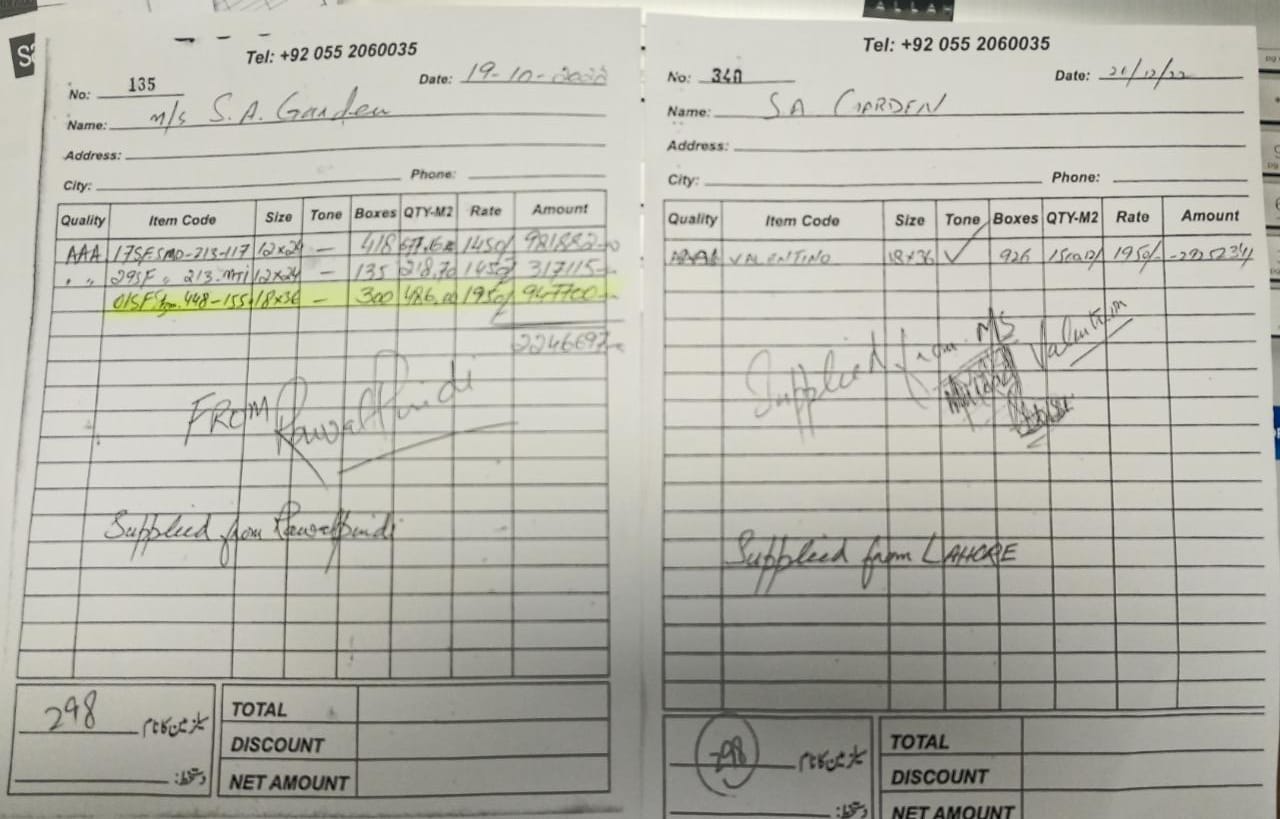 ALLAH
Tel: +92 055 2060035
No: 135 Date: 19-10-2022
Name: M/s S.A. Garden
Address:
City: Phone:
Quality Item Code Size Tone Boxes QTY-M2 Rate Amount
AAA 17SFSMD-213-117 12x24 — 418 1450/ 981882
" " 29SF " 213.MTI 12x24 — 135 218.70 1450/ 317115
01SF 448-155 18x36 — 300 486.00 1950/ 947700
2246697
FROM Rawalpindi
Supplied from Rawalpindi
298
دستخط:
TOTAL
DISCOUNT
NET AMOUNT
Tel: +92 055 2060035
No: 340 Date: 21/12/22
Name: S.A GARDEN
Address:
City: Phone:
Quality Item Code Size Tone Boxes QTY-M2 Rate Amount
AAA VALENTINO 18x36 ✓ 926 1500.12/ 1950/- 2925234
Supplied from M/S Valentino
Supplied from LAHORE
298
دستخط:
TOTAL
DISCOUNT
NET AMOUNT